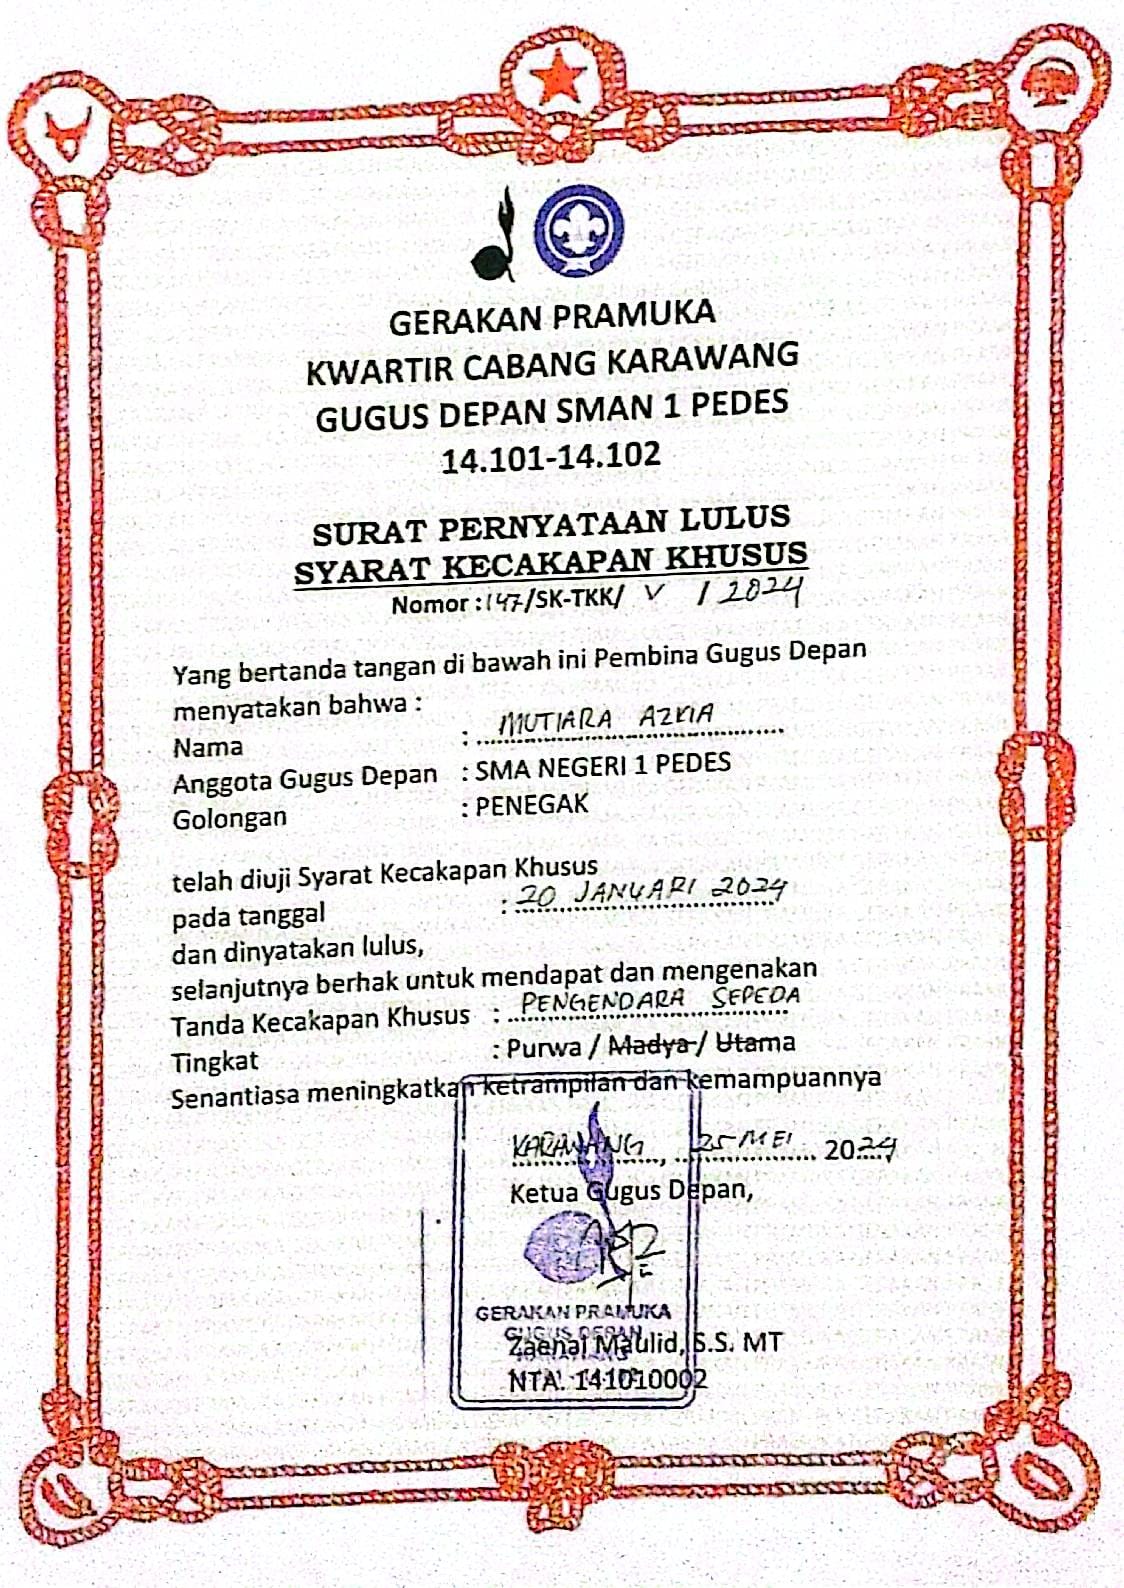 GERAKAN PRAMUKA
KWARTIR CABANG KARAWANG
GUGUS DEPAN SMAN 1 PEDES
14.101-14.102
SURAT PERNYATAAN LULUS
SYARAT KECAKAPAN KHUSUS
Nomor : 147/SK-TKK/ V / 2024
Yang bertanda tangan di bawah ini Pembina Gugus Depan
menyatakan bahwa :
Nama : MUTIARA AZKIA
Anggota Gugus Depan : SMA NEGERI 1 PEDES
Golongan : PENEGAK
telah diuji Syarat Kecakapan Khusus
pada tanggal : 20 JANUARI 2024
dan dinyatakan lulus,
selanjutnya berhak untuk mendapat dan mengenakan
Tanda Kecakapan Khusus : PENGENDARA SEPEDA
Tingkat : Purwa / Madya / Utama
Senantiasa meningkatkan ketrampilan dan kemampuannya
KARAWANG, 25 MEI 2024
Ketua Gugus Depan,
GERAKAN PRAMUKA
GUGUS DEPAN
Zaenal Maulid, S.S. MT
NTA. 141010002